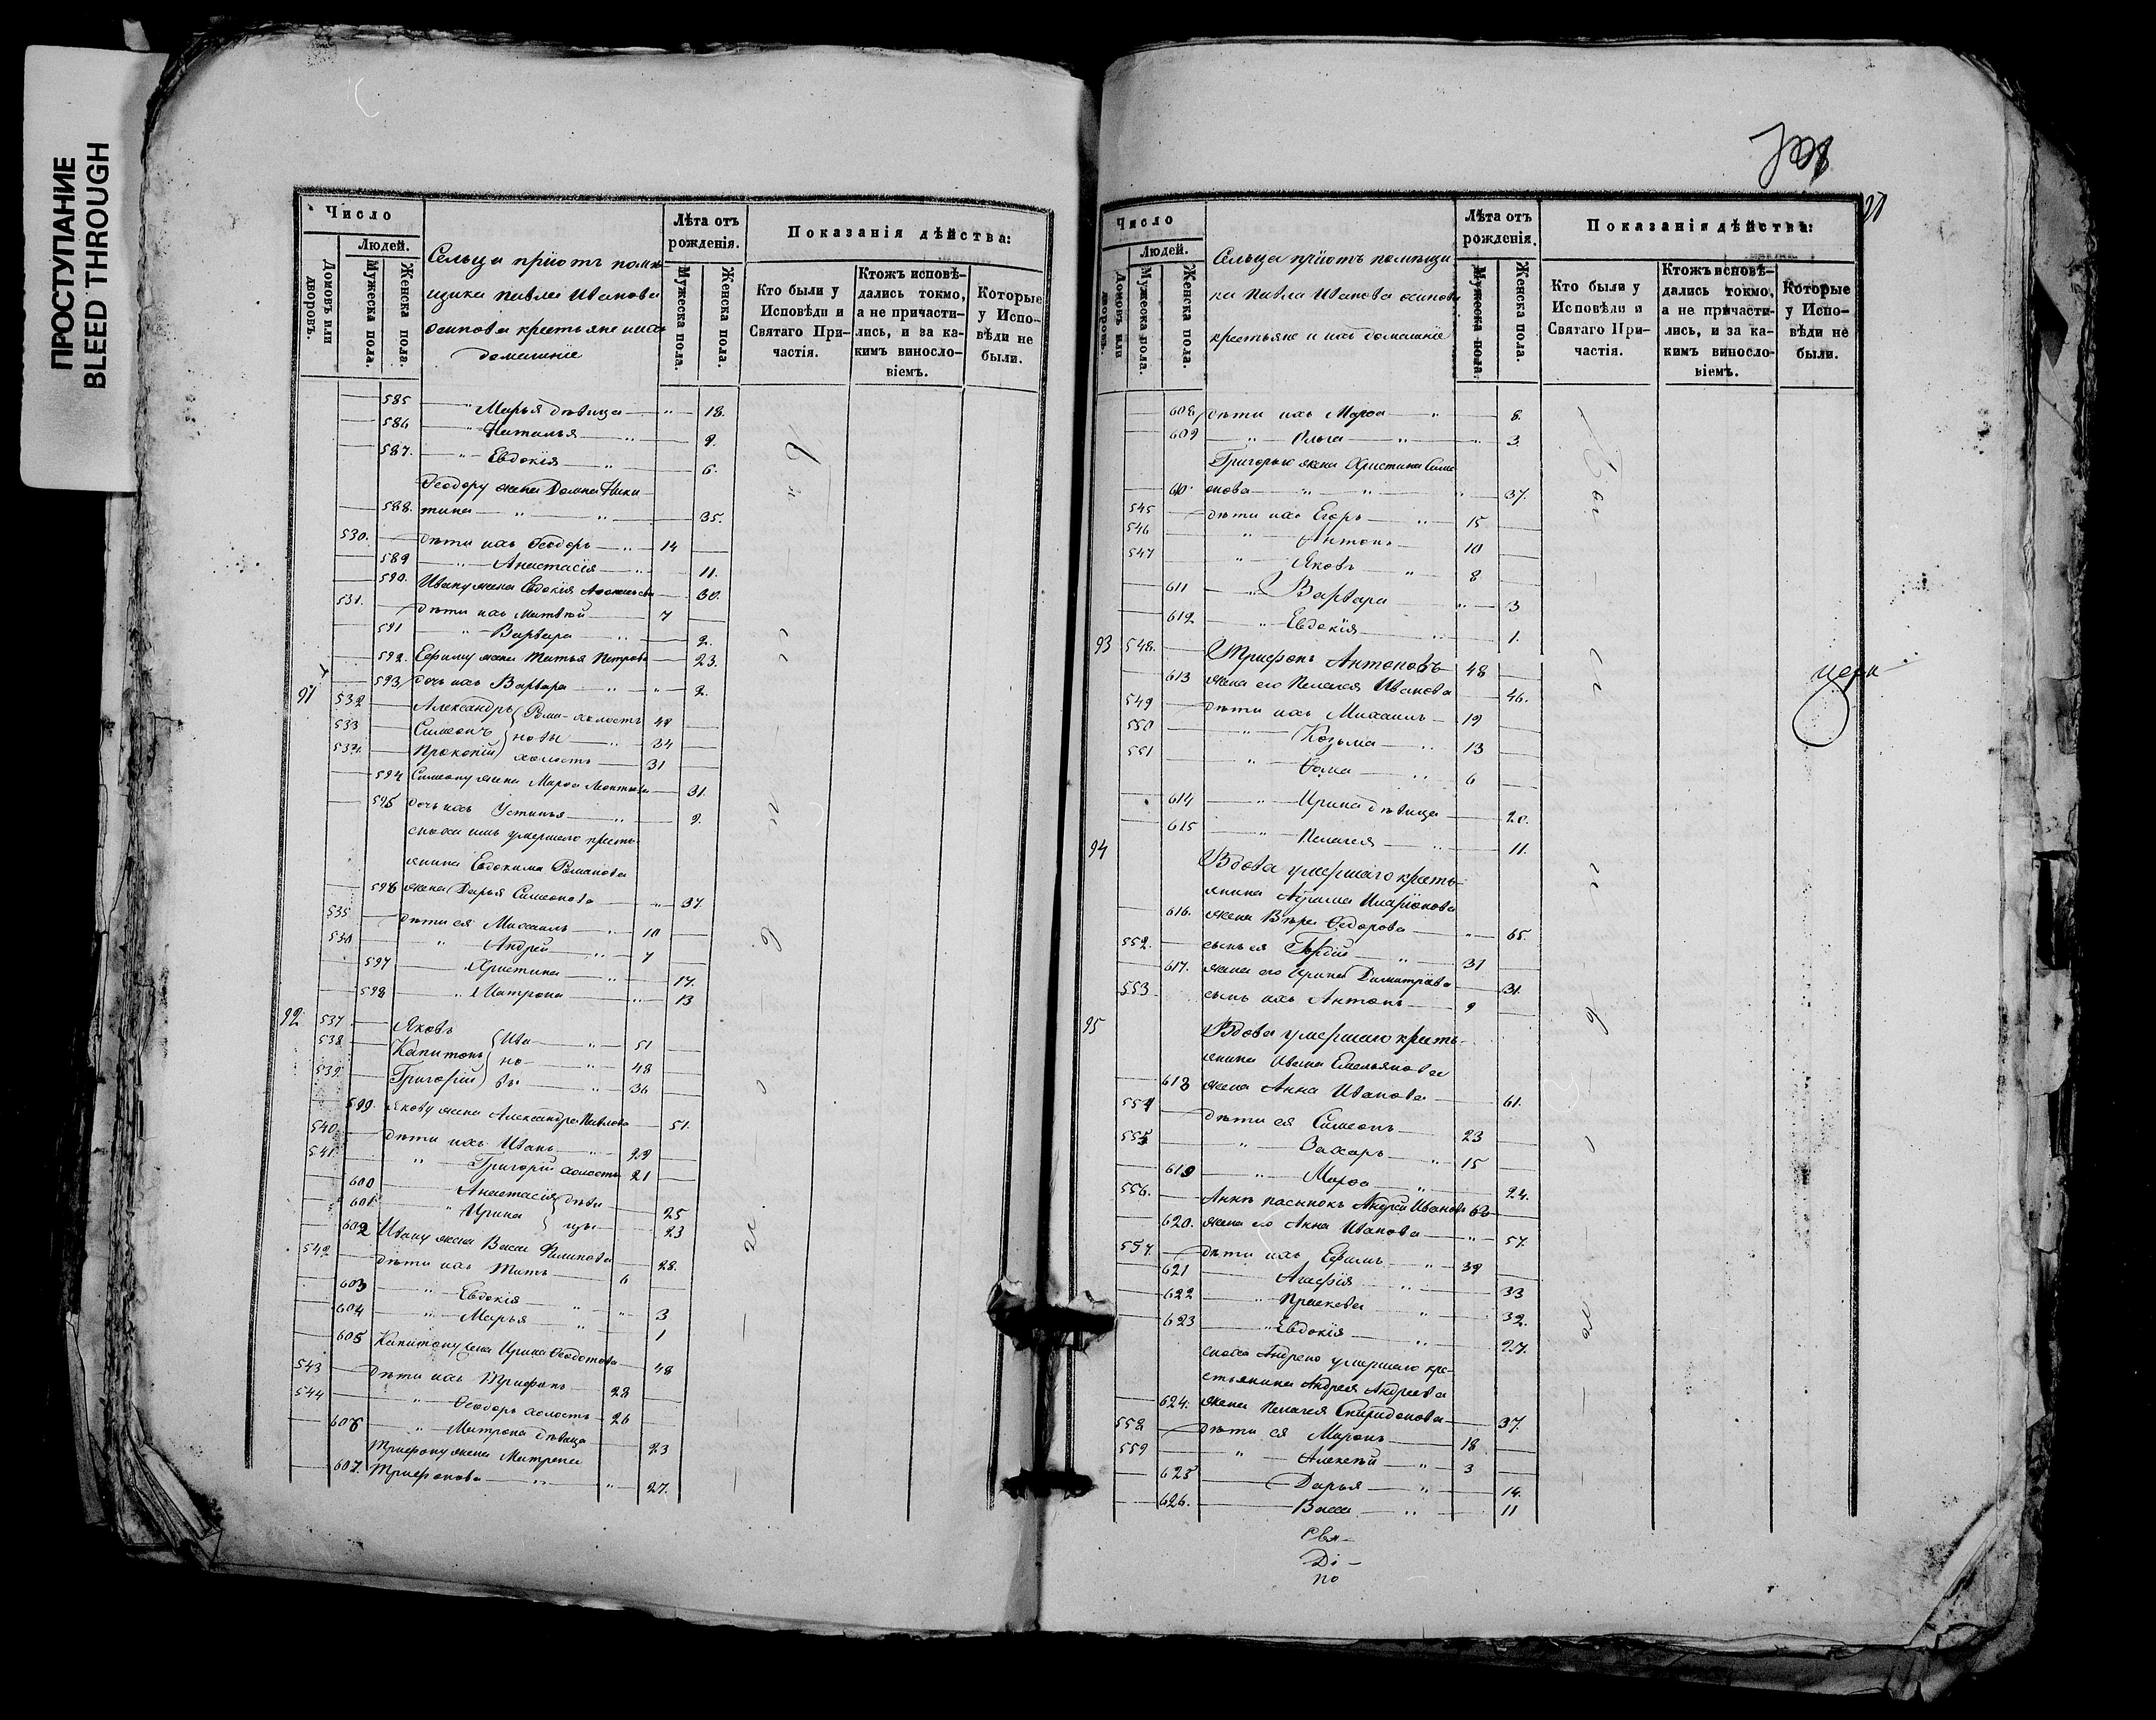 ПРОСТУПАНИЕ
BLEED THROUGH
Число
Людей.
Домовъ или дворовъ.
Мужеска пола.
Женска пола.
Сельца прiютъ помѣ-
щика Павла Иванова
Осипова крестьяне и ихъ
домашнiе
Лѣта отъ рожденiя.
Мужеска пола.
Женска пола.
Показанiя дѣйства:
Кто были у Исповѣди и Святаго При-частiя.
Ктожъ исповѣ-дались токмо, а не причасти-лись, и за ка-кимъ винословiемъ.
Которые у Испо-вѣди не были.
585 " Марья дѣвица " 18.
586 " Наталья " 9.
587. " Евдокiя " 6.
Ѳеодору жена Домна Ники-
588. тина " " 35.
530. дѣти ихъ Ѳеодоръ " 14
589 " Анастасiя " 11.
590. Ивану жена Евдокiя 30.
531. дѣти ихъ Матвѣй 7
591 " Варвара " 2.
592. Ефиму жена Татья Петрова 23.
593 дочь ихъ Варвара " " 2.
91 532 Александръ Рома- холостъ
533 Симеонъ новы " 34
534. Прокопiй холостъ 31
594 Симеону жена Марѳа 31.
595 дочь ихъ Устинья " 9.
сноха имъ умершаго кресть-
янина Евдокима Романова
596 жена Дарья Симеонова " 37.
535 дѣти ея Михаилъ " 10
536 " Андрей " 7
597 Христина " 17.
598 " Матрона " 13
92 537 Яковъ Ива- " 51
538 Капитонъ но- " 48
539. Григорiй вы " 36
599. Якову жена Александра Павлова 51.
540. дѣти ихъ Иванъ " 29
541. " Григорiй холостъ 21
600 Анастасiя дѣви 25
601. " Ирина цы 23
602 Ивану жена Васса Филипова 28.
542. дѣти ихъ Титъ 6
603 " Евдокiя " " 3
604 " Марья " 1
605 Капитону жена Ирина Ѳеодотова 48
543 дѣти ихъ Трифонъ 28
544 " Ѳеодоръ холостъ 26
606 " Матрона дѣвица 23
Трифону жена Матрена
607. Трифонова " " 27.
Число
Людей.
Домовъ или дворовъ.
Мужеска пола.
Женска пола.
Сельца прiютъ помѣщи
ка Павла Иванова Осипова
крестьяне и ихъ домашнiе
Лѣта отъ рожденiя.
Мужеска пола.
Женска пола.
Показанiя дѣйства:
Кто были у Исповѣди и Святаго При-частiя.
Ктожъ исповѣ-дались токмо, а не причасти-лись, и за ка-кимъ винословiемъ.
Которые у Испо-вѣди не были.
608, дѣти ихъ Марѳа " 8.
609 " Ольга " " 3.
Григорью жена Христина Симе
610. онова " " " 37.
545 дѣти ихъ Егоръ " 15
546 " Антонъ 10
547 " Яковъ " 8
611 " Варвара " 3
612 " Евдокiя " 1.
93 548. Трифонъ Антоновъ 48
613 жена его Пелагея Иванова 46.
549 дѣти ихъ Михаилъ 19
550 " Козьма " 13
551 " Ѳома " 6
614 " Ирина дѣвица 20.
615 " Пелагея " 11.
94 Вдова умершаго кресть-
янина Абрама Иларiонова
616. жена Вѣра Ѳедорова " 65.
552. сынъ ея Гордiй " 31
617. жена его Ирина Димитрiева 31.
553 сынъ ихъ Антонъ 9
95 Вдова умершаго кресть-
янина Ивана Емельянова
618 жена Анна Иванова 61.
554 дѣти ея Симеонъ 23
555 " Захаръ " 15
619 " Марѳа " 24.
556. Аннѣ пасынокъ Андрей Ивановъ
620. жена его Анна Иванова " 57.
557. дѣти ихъ Ефимъ " 39
621 Агафiя " 33
622 " Прасковья " 32.
623 " Евдокiя " 27.
сноха Андрею умершаго кре-
стьянина Андрея Андреева
624. жена Пелагея Спиридонова 37.
558 дѣти ея Миронъ 18
559 " Алексѣй " 3
625 Дарья " 14.
626. Васса " 11
Свя-
Дi-
По